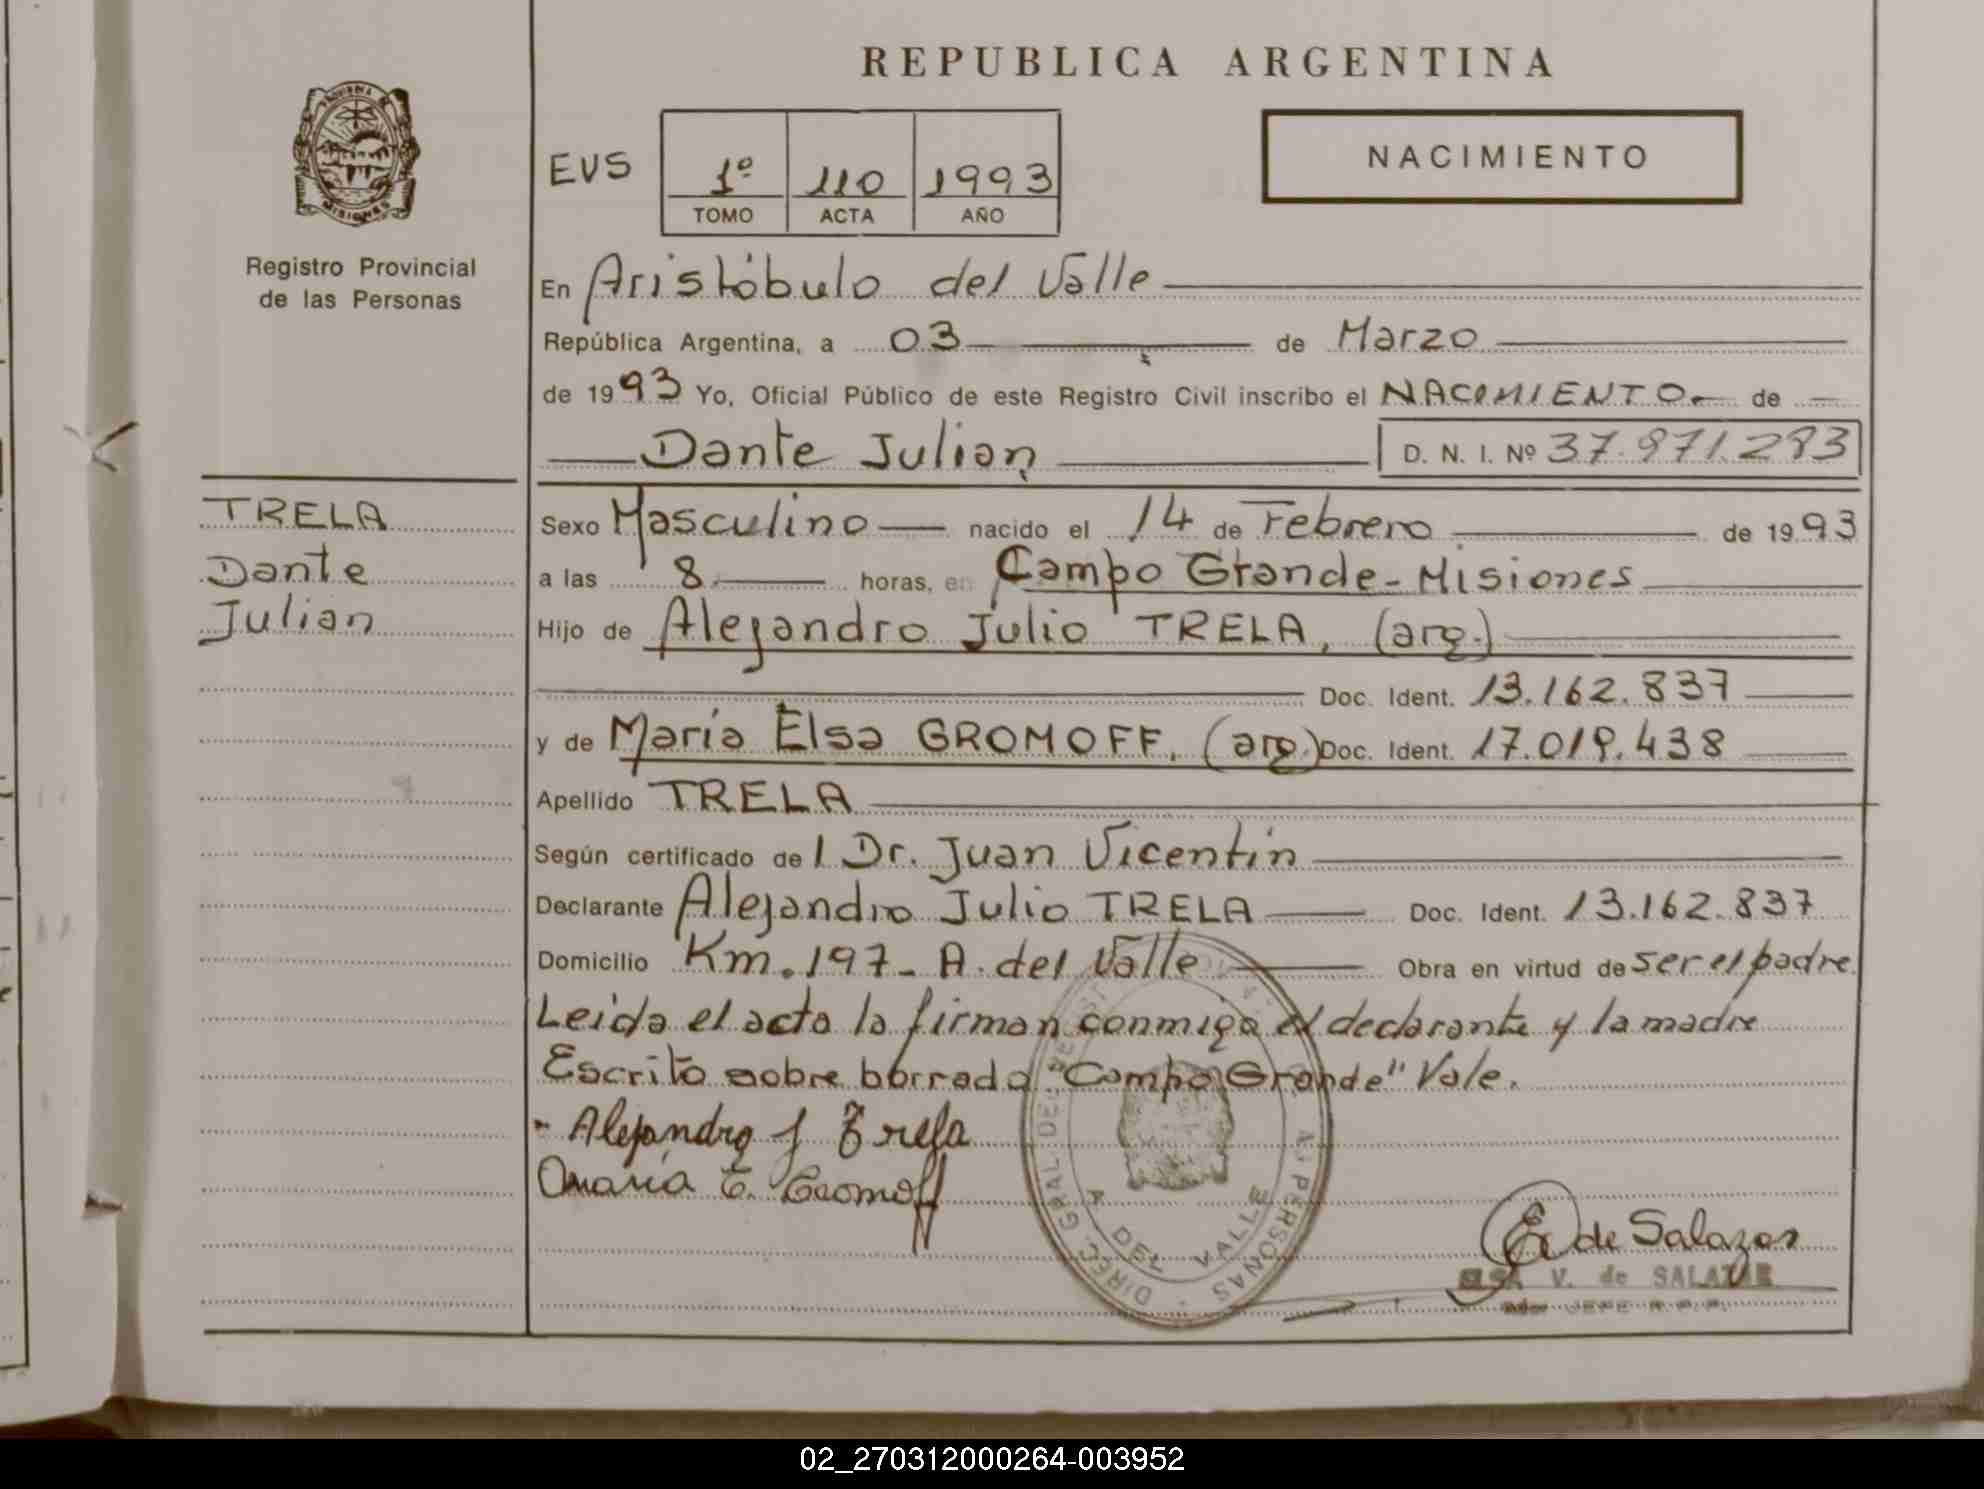 REPUBLICA ARGENTINA
PROVINCIA DE
MISIONES
Registro Provincial
de las Personas
EVS
1º 110 1993
TOMO ACTA AÑO
NACIMIENTO
En Aristóbulo del Valle
República Argentina, a 03 de Marzo
de 1993 Yo, Oficial Público de este Registro Civil inscribo el NACIMIENTO de
Dante Julian D. N. I. Nº 37.971.283
TRELA
Dante
Julian
Sexo Masculino nacido el 14 de Febrero de 1993
a las 8 horas, en Campo Grande - Misiones
Hijo de Alejandro Julio TRELA, (arg.)
Doc. Ident. 13.162.837
y de María Elsa GROMOFF, (arg.) Doc. Ident. 17.019.438
Apellido TRELA
Según certificado del Dr. Juan Vicentin
Declarante Alejandro Julio TRELA Doc. Ident. 13.162.837
Domicilio Km. 197 - A. del Valle Obra en virtud de ser el padre
Leida el acta la firman conmigo el declarante y la madre
Escrito sobre borrado "Campo Grande" Vale.
Alejandro J Trela
Maria E. Gromoff
DIREC. GRAL DEL REGIST PERSONAS
A DEL VALLE
E de Salazar
ELSA V. de SALAZAR
JEFE R.P.P.
02_270312000264-003952